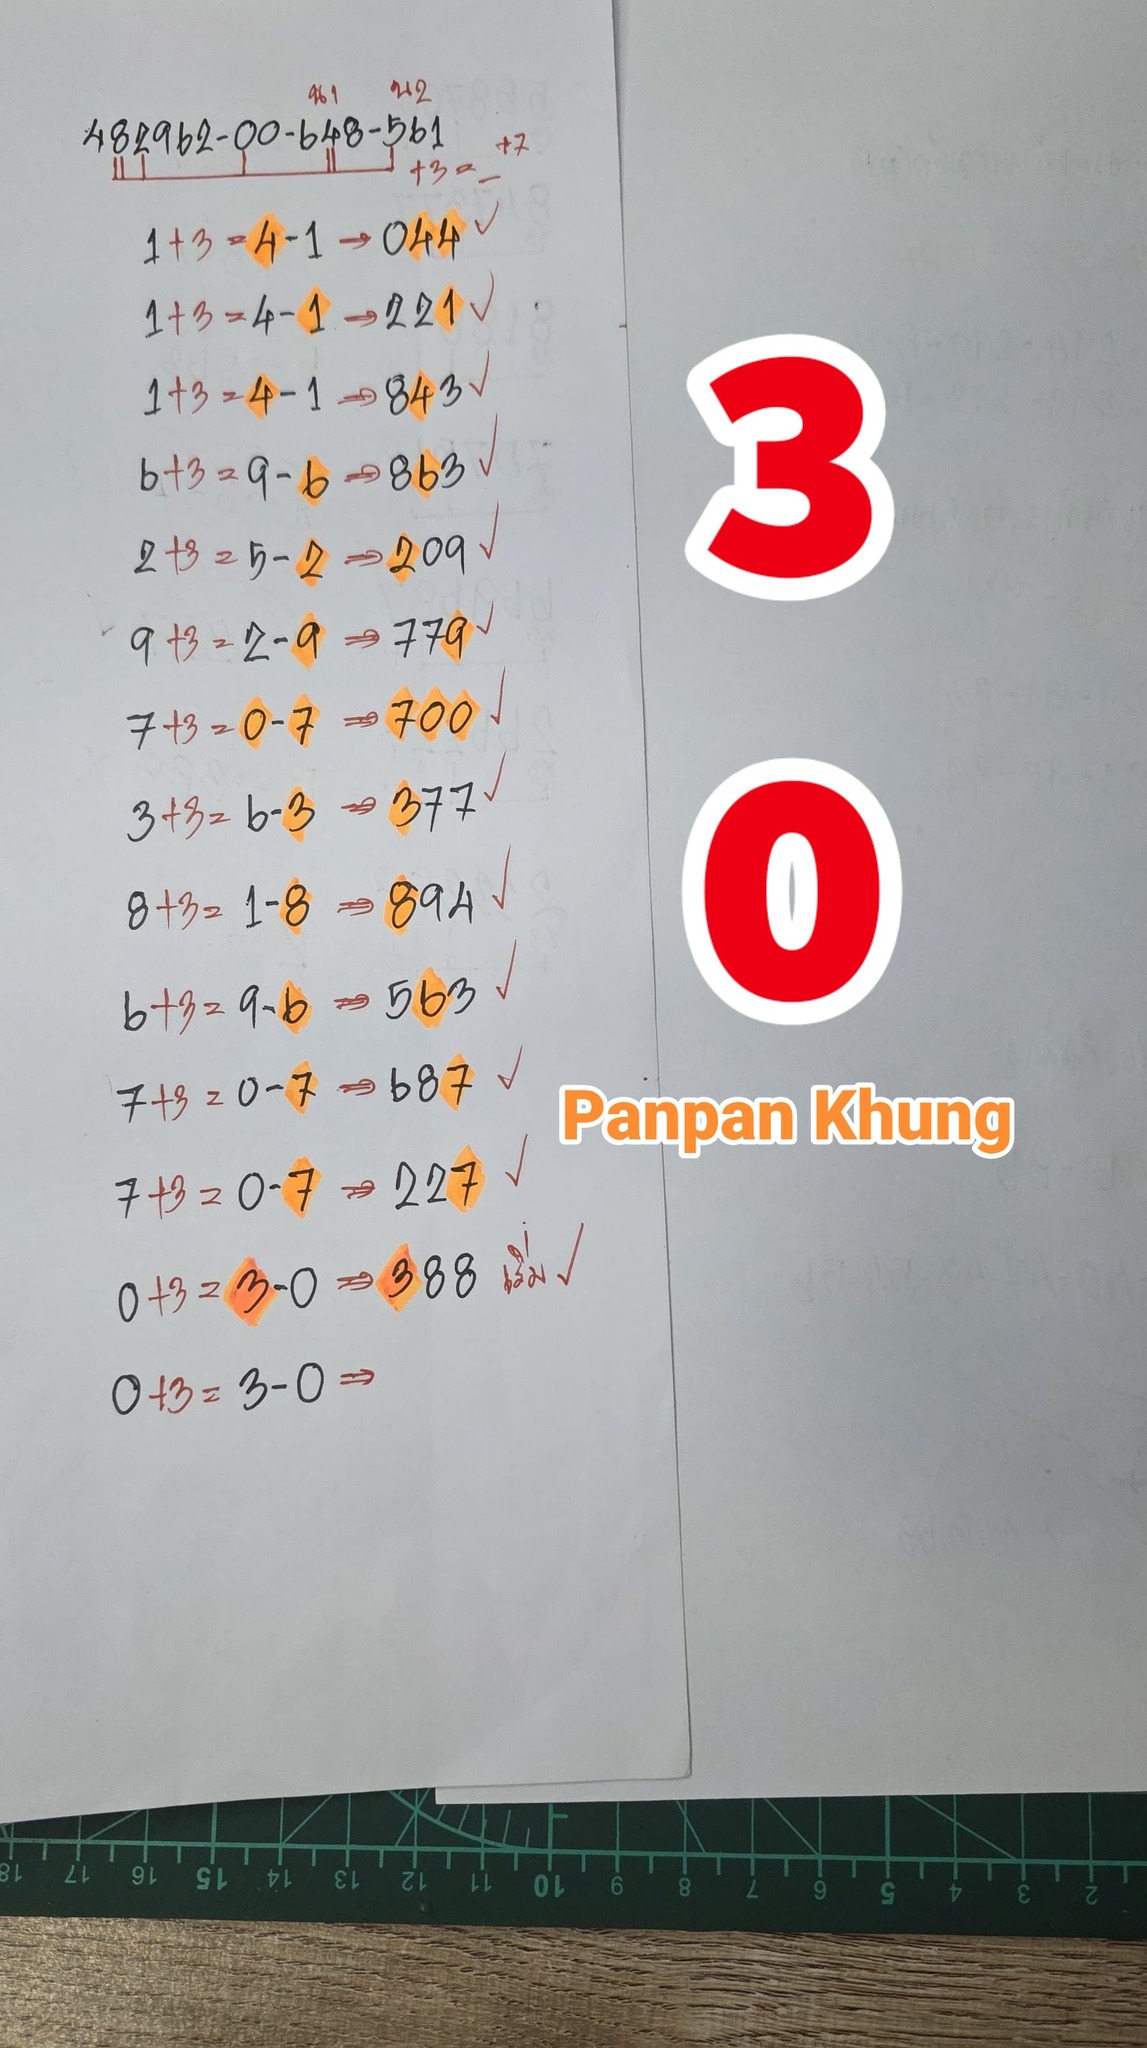 น1 น2
482962-00-648-561
+3=_ +7
1+3=4-1→044✓
1+3=4-1→221✓
1+3=4-1⇒843✓
6+3=9-6⇒863✓
2+3=5-2⇒209✓
9+3=2-9⇒779✓
7+3=0-7⇒700✓
3+3=6-3⇒377✓
8+3=1-8⇒894✓
6+3=9-6⇒563✓
7+3=0-7⇒687✓
7+3=0-7⇒227✓
0+3=3-0⇒388 เริ่ม✓
0+3=3-0⇒
3
0
Panpan Khung
18 17 16 15 14 13 12 11 10 9 8 7 6 5 4 3 2